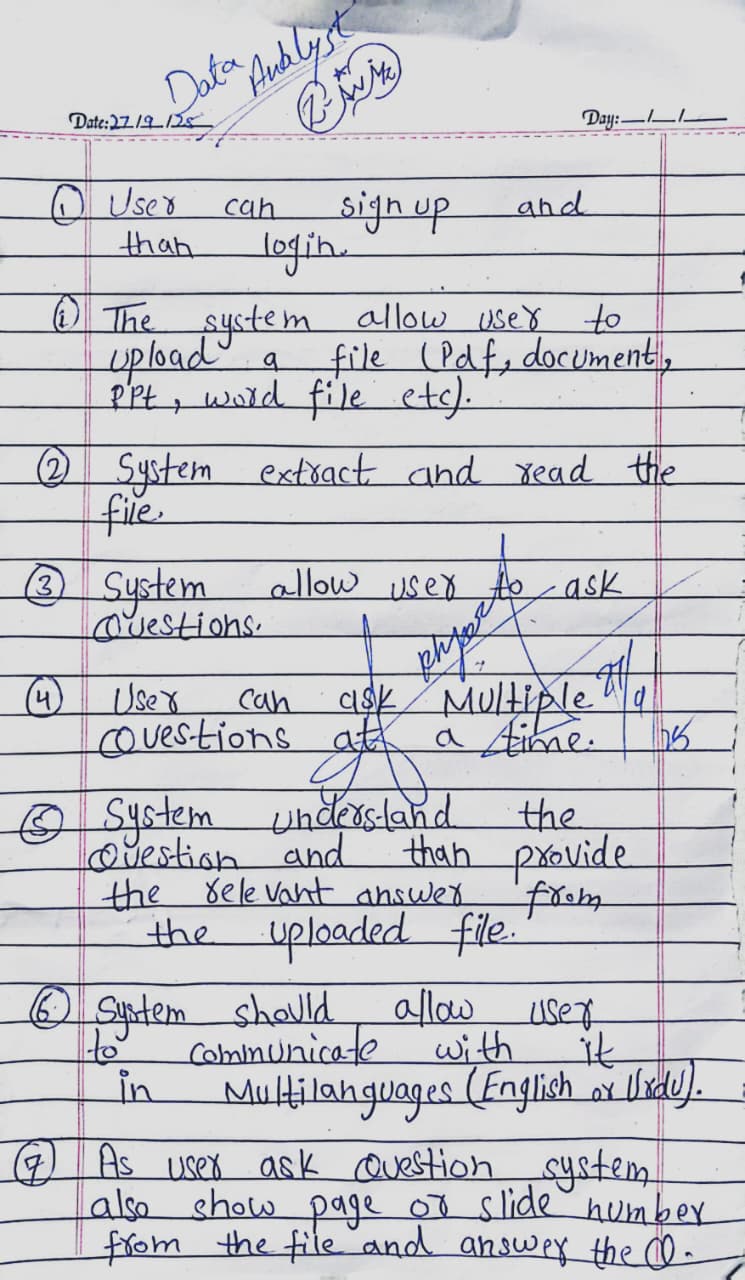 Data Analyst
Date: 27/9/25
Day: __/__/__
① User can sign up and
than login.
ⓘ The system allow user to
upload a file (Pdf, document,
PPt, word file etc).
② System extract and read the
file.
③ System allow user to ask
Questions.
④ User can ask Multiple
Questions at a time.
27/9/25
⑤ System understand the
Question and than provide
the relevant answer from
the uploaded file.
⑥ System should allow user
to communicate with it
in Multilanguages (English or Urdu).
⑦ As user ask Question system
also show page or slide number
from the file and answer the Q.